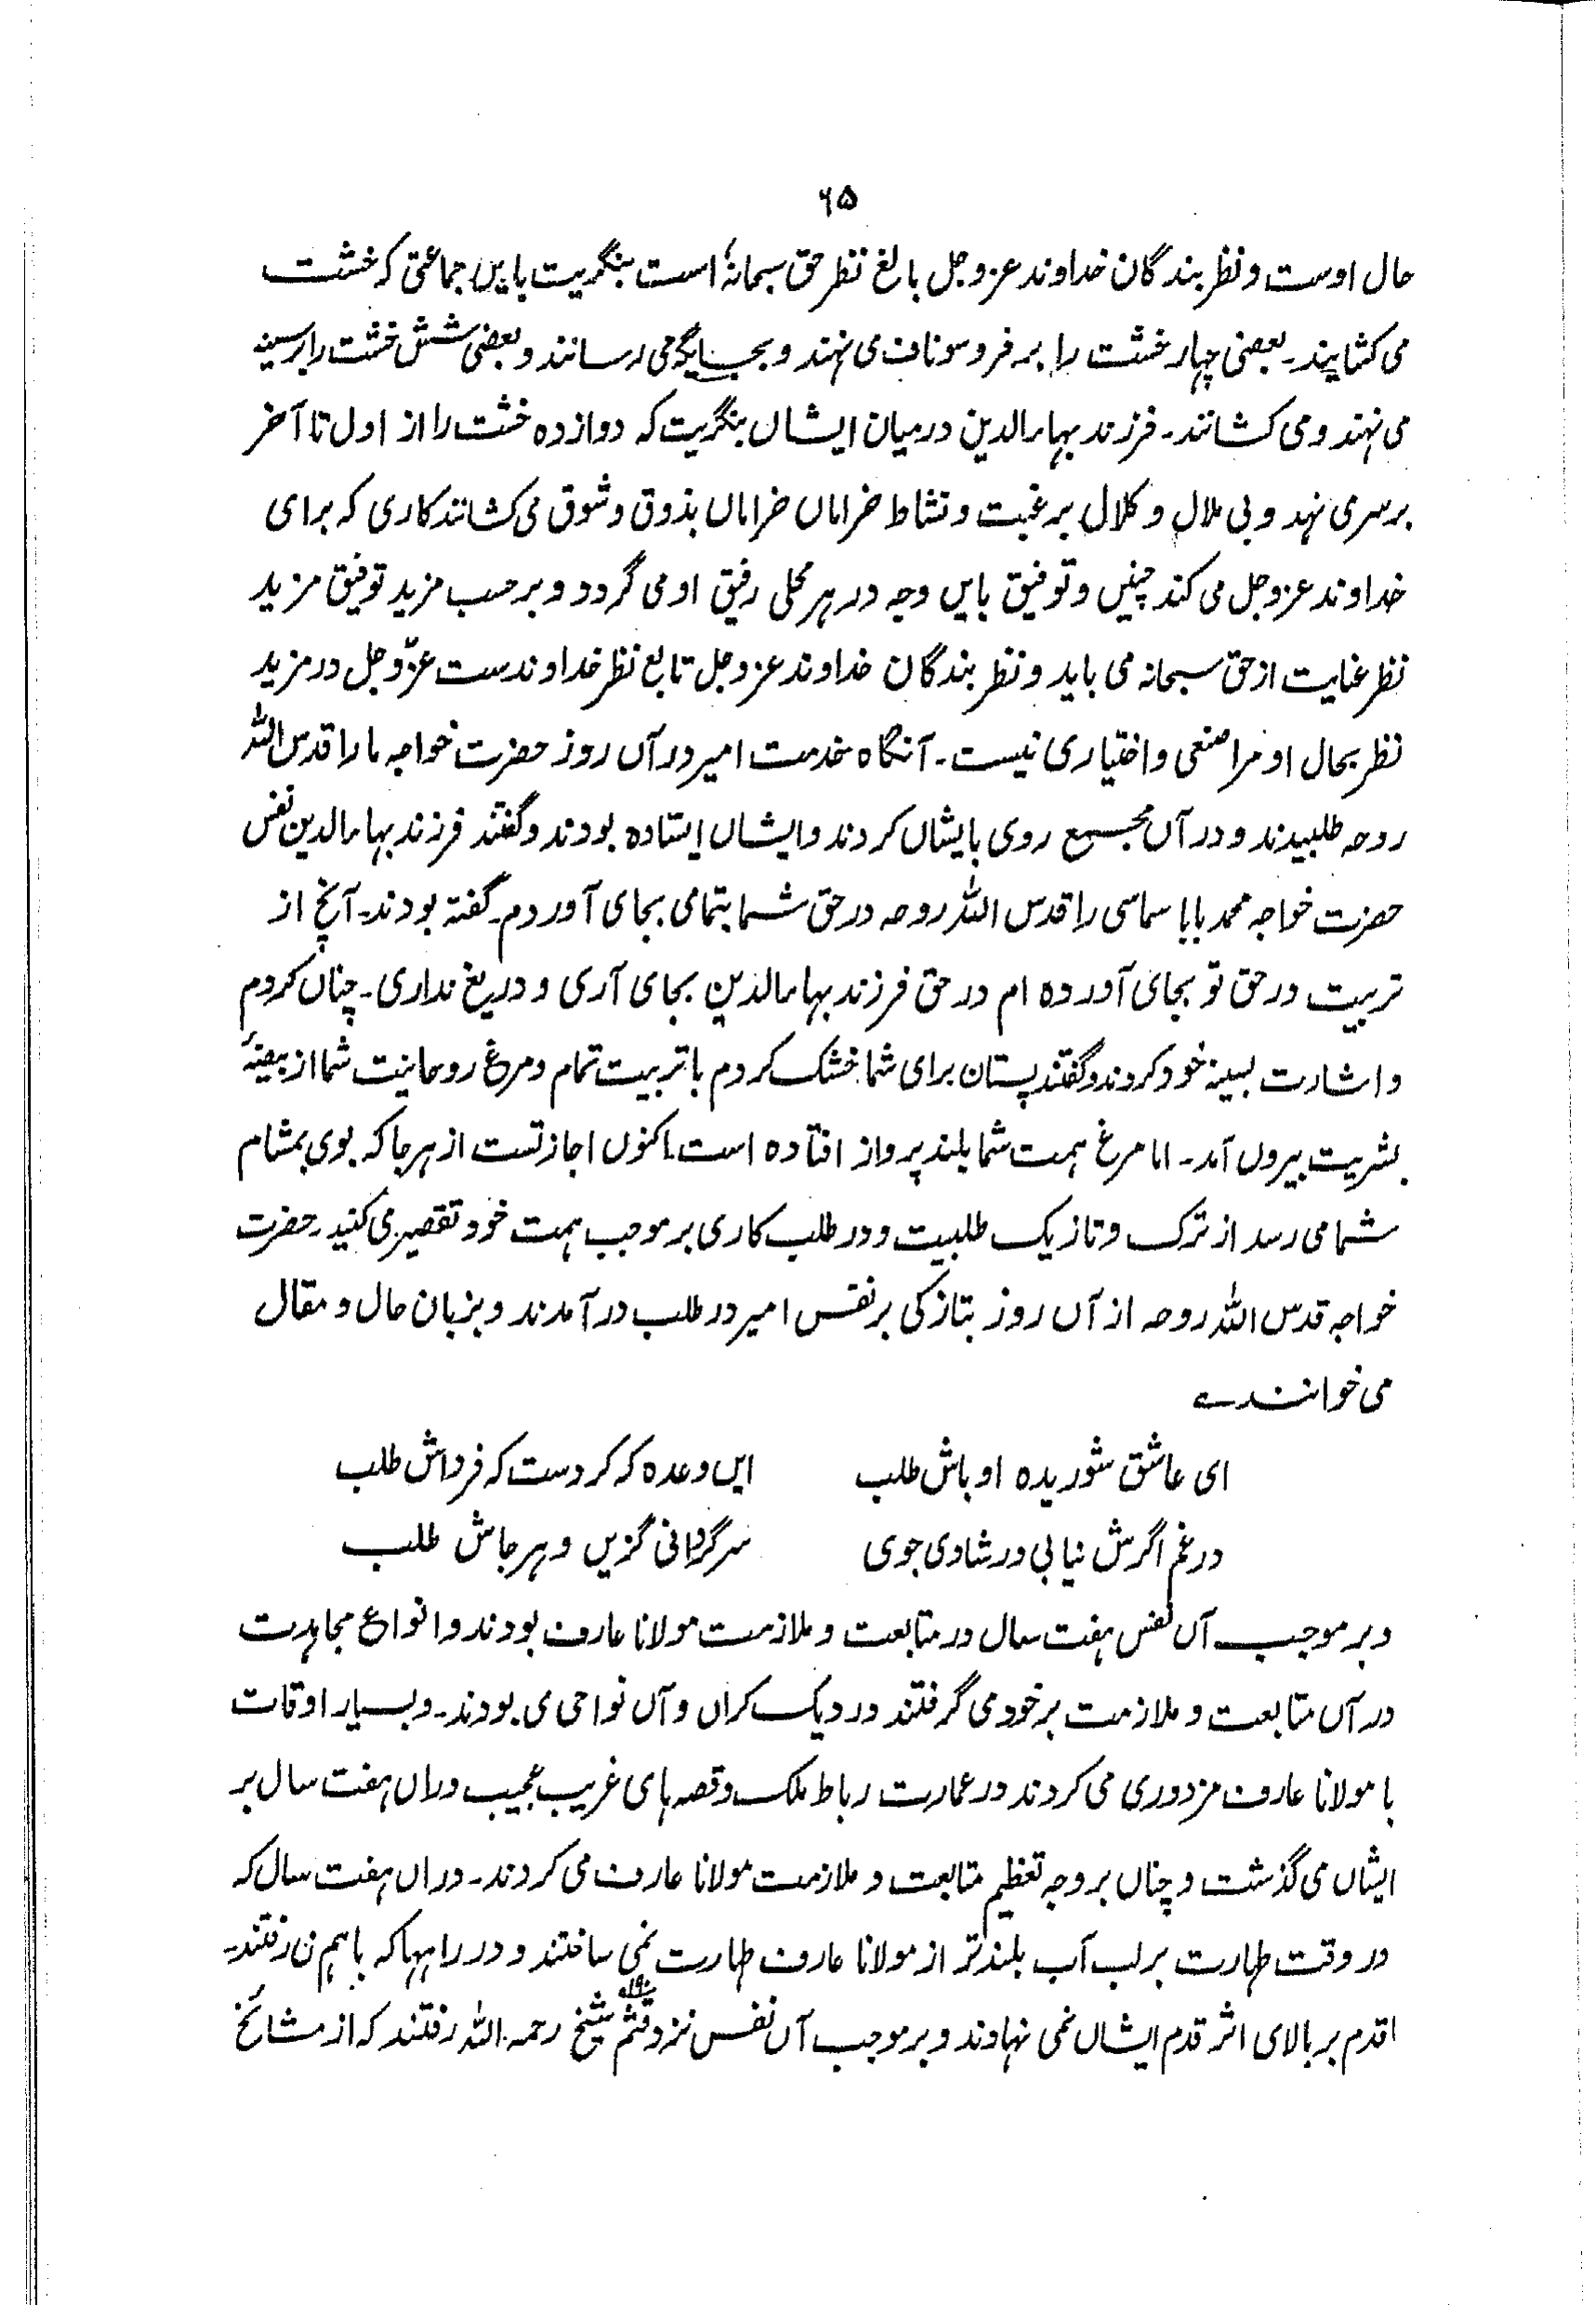 ۶۵
حال اوست و نظر بندگان خداوند عزوجل بالغ نظر حق سبحانهٗ است بنگریت بایں جماعتی که خشت
می کشایند۔ بعضی چہار خشت را بر فروسوناف می نہند و بجایگه می رسانند و بعضی شش خشت را برسینه
می نهند و می کشانند۔ فرزند بہاء الدین درمیان ایشاں بنگریت که دوازده خشت را از اول تا آخر
بر سری نهد و بی ملال و کلال برغبت و نشاط خراماں خراماں بذوق و شوق می کشانند کاری که برای
خداوند عزوجل می کند چنیں و توفیق بایں وجه در هر محلی رفیق او می گردد و بر حسب مزید توفیق مزید
نظر عنایت از حق سبحانه می باید و نظر بندگان خداوند عزوجل تابع نظر خداوندست عزّوجل در مزید
نظر بحال او مرا صنعی و اختیاری نیست۔ آنگاه خدمت امیر در آں روز حضرت خواجه ما را قدس الله
روحه طلبیدند و در آں مجمع روی بایشاں کردند و ایشاں ایستاده بودند و گفتند فرزند بہاء الدین نفس
حضرت خواجه محمد بابا سماسی را قدس الله روحه در حق شما بتمامی بجای آوردم۔ گفته بودند۔ آنچ از
تربیت در حق تو بجای آورده ام در حق فرزند بہاء الدین بجای آری و دریغ نداری۔ چناں کردم
و اشارت بسینۂ خود کردند و گفتند پستان برای شما خشک کردم با تربیت تمام و مرغ روحانیت شما از بیضۂ
بشریت بیروں آمد۔ اما مرغ ہمت شما بلند پرواز افتاده است۔ اکنوں اجازتست از هر جا که بوی بمشام
شما می رسد از ترک و تازیک طلبیت و در طلب کاری بر موجب ہمت خود تقصیری کنید۔ حضرت
خواجه قدس الله روحه از آں روز بتازگی بر نفس امیر در طلب در آمدند و بزبان حال و مقال
می خوانندے
ای عاشق شوریده اوباش طلب ایں وعده که کردست که فرداش طلب
در غم اگرش نیابی در شادی جوی سرگردانی گزیں و هر جاش طلب
و بر موجب آں نفس ہفت سال در متابعت و ملازمت مولانا عارف بودند و انواع مجاہدت
در آں متابعت و ملازمت بر خود می گرفتند در دیک کراں و آں نواحی می بودند۔ و بسیار اوقات
با مولانا عارف مزدوری می کردند در عمارت رباط ملک و قصہ ہای غریب عجیب دراں ہفت سال بر
ایشاں می گذشت و چناں بر وجه تعظیم متابعت و ملازمت مولانا عارف می کردند۔ دراں ہفت سال که
در وقت طہارت بر لب آب بلندتر از مولانا عارف طہارت نمی ساختند و در راہہا که باہم می رفتند۔
اقدم بر بالای اثر قدم ایشاں نمی نہادند و بر موجب آں نفس نزد قثم شیخ رحمه الله رفتند که از مشائخ